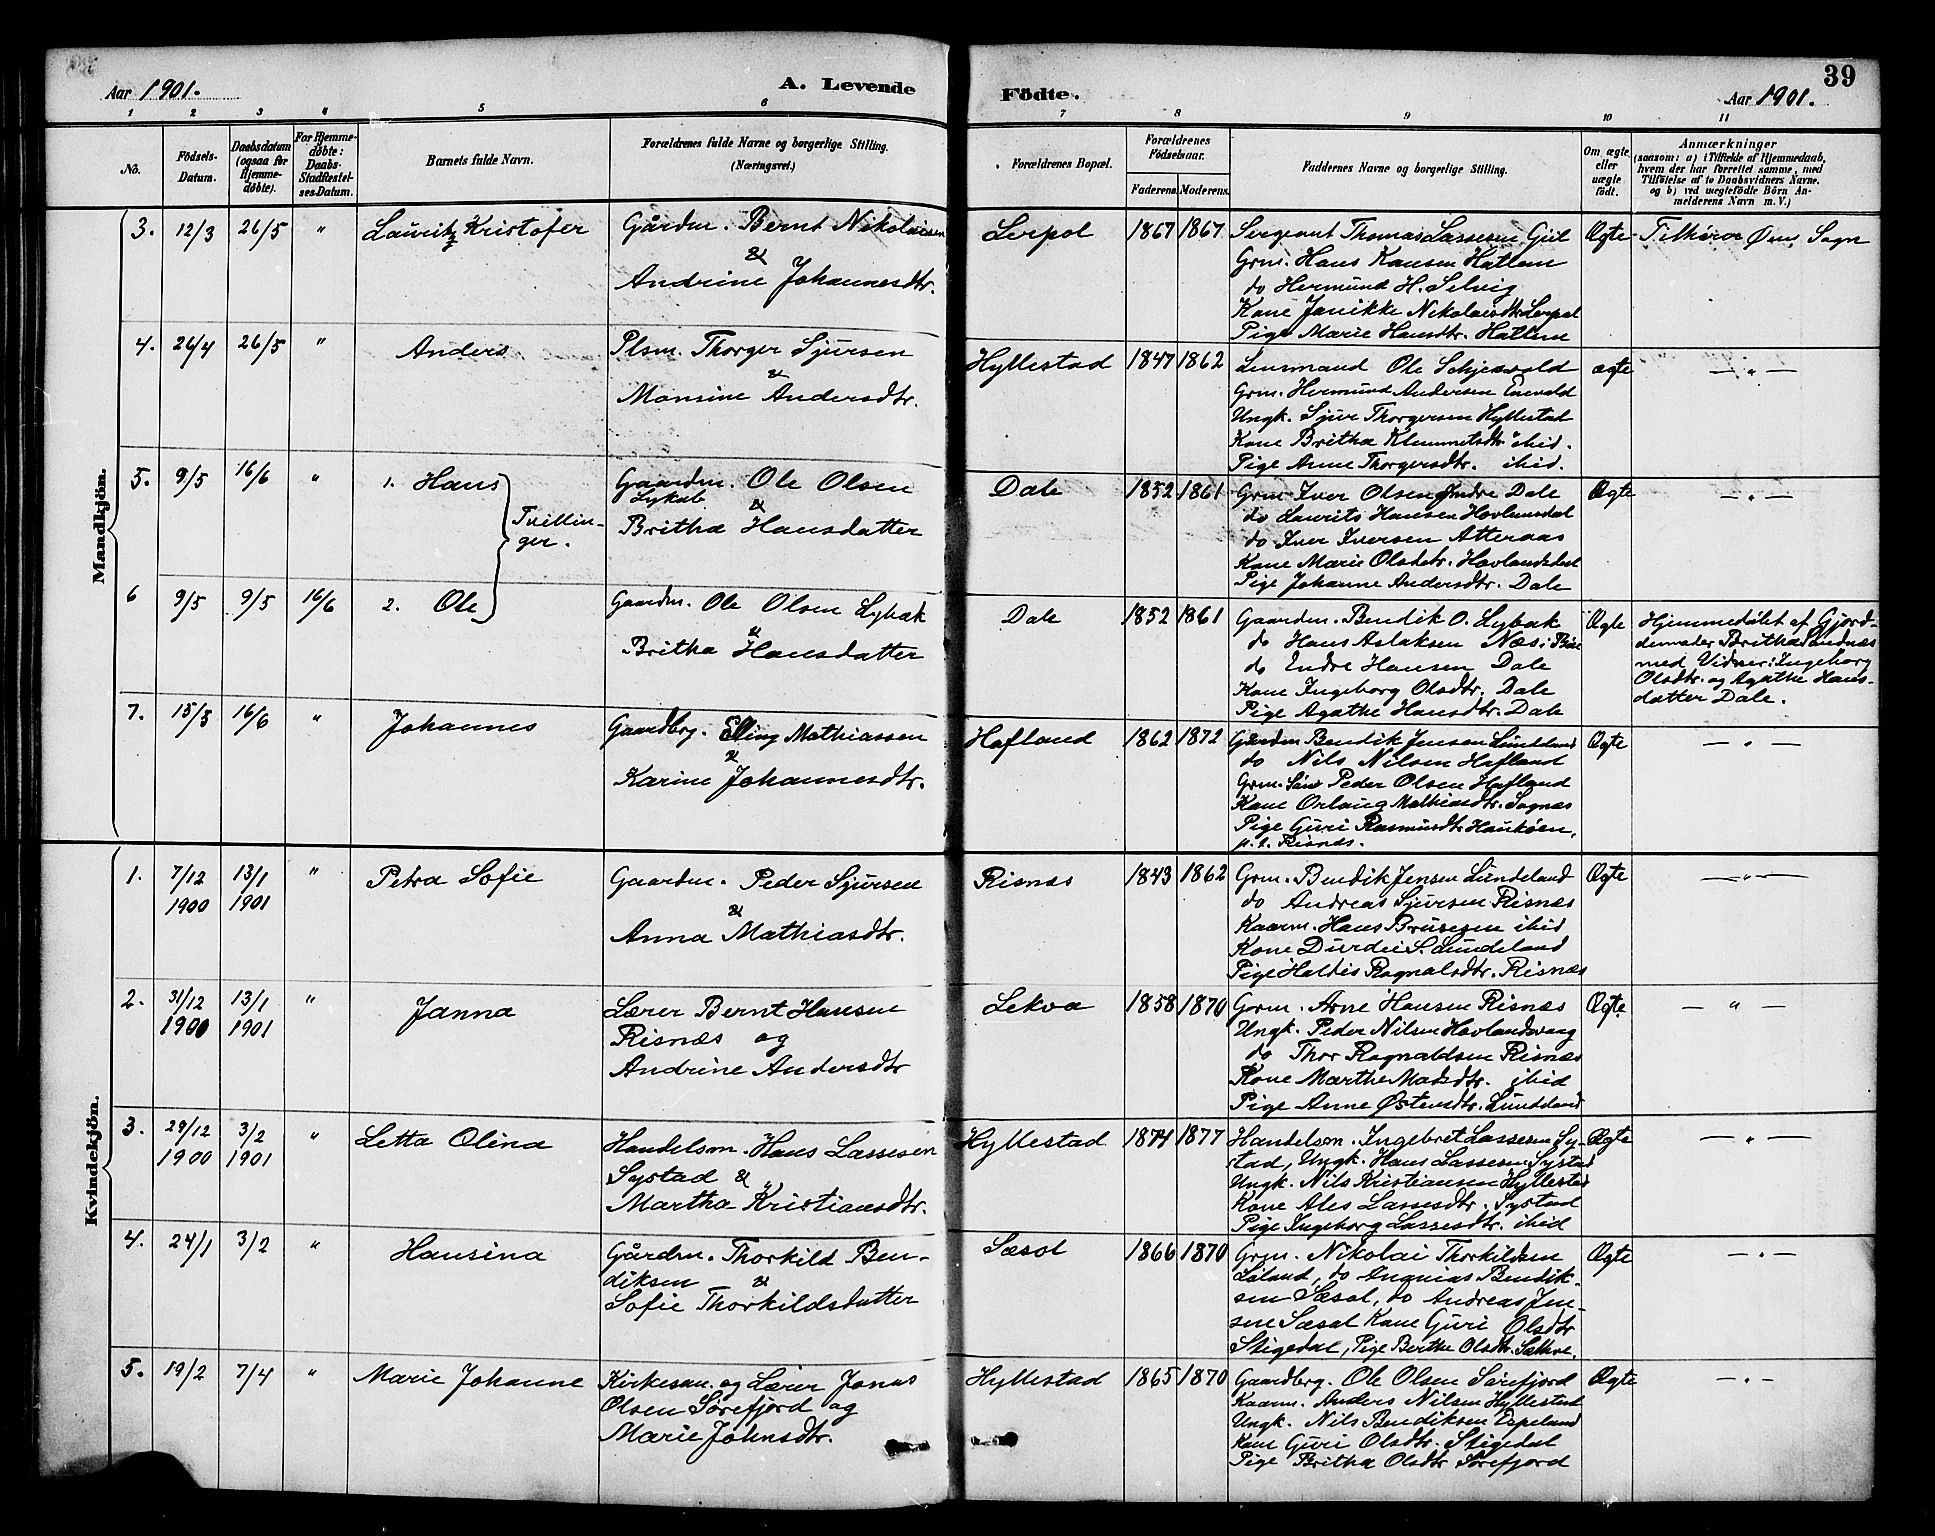 Aar 1901.
A. Levende
Födte.
39
Aar 1901.
1 2 3 4 5 6 7 8 9 10 11
No.
Födsels-Datum.
Daabsdatum (ogsaa for Hjemme-döbte).
For Hjemme-döbte: Daabs-Stadfæstel-ses-Datum.
Barnets fulde Navn.
Forældrenes fulde Navne og borgerlige Stilling.
(Næringsvei.)
Forældrenes Bopæl.
Forældrenes Födselsaar.
Faderens. Moderens.
Faddernes Navne og borgerlige Stilling.
Om ægte eller uægte födt.
Anmærkninger
(saasom: a) i Tilfælde af Hjemmedaab,
hvem der har forrettet samme, med
Tilföielse af to Daabsvidners Navne,
og b) ved uægtefödte Börn An-
melderens Navn m. V.)
Mandkjön.
3. 12/3 26/5 " Lauritz Kristofer
Gårdm. Bernt Nikolaisen
&
Andrine Johannesdtr.
Lerpol 1867 1867
Sergeant Thomas Lassesen Giil
Grm. Hans Hansen Hatlem
do Hermund H. Selvig
Kone Janikke Nikolaisdtr. Lerpol
Pige Marie Hansdtr. Hatlem
Ægte
Tilhörer Sogn
4. 26/4 26/5 " Anders
Plsm. Thorger Sjursen
&
Monsine Andersdtr.
Hyllestad 1847 1862
Lensmand Ole Schjervold
Grm. Hermund Andersen
Ungk. Sjur Thorgersen Hyllestad
Kone Britha Klemmetsdtr. ibid.
Pige Anne Thorgersdtr. ibid.
ægte
— " —
5. 9/5 16/6 " 1. Hans
Tvillin-
ger.
Gaardm. Ole Olsen
Lybæk &
Britha Hansdatter
Dale 1852 1861
Grm. Iver Olsen Indre Dale
do Laurits Hansen Hovlandsdal
do Iver Iversen Atteraas
Kone Marie Olsdtr. Hovlandsdal
Pige Johanne Andersdtr. Dale
Ægte
— " —
6 9/5 9/5 16/6 2. Ole
Gaardm. Ole Olsen Lybæk
&
Britha Hansdatter
Dale 1852 1861
Gaardm. Bendik O. Lybæk
do Hans Aslaksen Næs i Bøe
do Endre Hansen Dale
Kone Ingeborg Olsdtr. Dale
Pige Agathe Hansdtr. Dale
Ægte
Hjemmedøbt af Gjord-
demoder Britha Sandnæs
med Vidner: Ingeborg
Olsdtr. og Agathe Hans-
datter Dale.
7. 15/5 16/6 " Johannes
Gaardbrg. Elling Mathiassen
&
Karine Johannesdtr.
Hafland 1862 1872
Gårdm Bendik Jensen Lundeland
do Nils Nilsen Hafland
Grm. Søn Peder Olsen Hafland
Kone Orlaug Mathiasdtr. Sognæs
Pige Guri Rasmusdtr. Haukøen,
p. t. Risnæs.
Ægte
— " —
Kvindekjön.
1. 7/12 1900 13/1 1901 " Petra Sofie
Gaardm. Peder Sjursen
&
Anna Mathiasdtr.
Risnæs 1843 1862
Grm. Bendik Jensen Lundeland
do Andreas Sjursen Risnæs
Kaarm. Hans Brusesen ibid
Kone Durdei S. Lundeland
Pige Haldis Ragnalsdtr. Risnæs
Ægte
— " —
2. 31/12 1900 13/1 1901 " Janna
Lærer Bernt Hansen
Risnæs og
Andrine Andersdtr
Lekva 1858 1870
Grm. Arne Hansen Risnæs
Ungk. Peder Nilsen Hovlandsvaag
do Thor Ragnaldsen Risnæs
Kone Marthe Madsdtr. ibid
Pige Anne Østensdtr. Lundeland
Ægte.
— " —
3. 29/12 1900 3/2 1901 " Letta Olina
Handelsm. Hans Lassesen
Systad &
Martha Kristiansdtr.
Hyllestad 1874 1877
Handelsm. Ingebret Lassesen Sy-
stad, Ungk. Hans Lassesen Systad
Ungk. Nils Kristiansen Hyllestad
Kone Ales Lassesdtr. Systad
Pige Ingeborg Lassesdtr. ibid
Ægte
— " —
4. 24/1 3/2 " Hansina
Gårdm. Thorkild Ben-
diksen &
Sofie Thorkildsdatter
Sæsol 1866 1870
Grm. Nikolai Thorkildsen
Løland, do Ananias Bendik-
sen Sæsol, do Andreas Jen-
sen Sæsol Kone Guri Olsdtr
Stigedal, Pige Berthe Olsdtr. Sæthre.
Ægte
— " —
5. 19/2 7/4 " Marie Johanne
Kirkesan. og Lærer Jonas
Olsen Sørefjord og
Marie Johnsdtr.
Hyllestad 1865 1870
Gaardbrg. Ole Olsen Sørefjord
Kaarm. Anders Nilsen Hyllestad
Ungk. Nils Bendiksen Espeland
Kone Guri Olsdtr. Stigedal
Pige Britha Olsdtr Sørefjord
Ægte
— " —